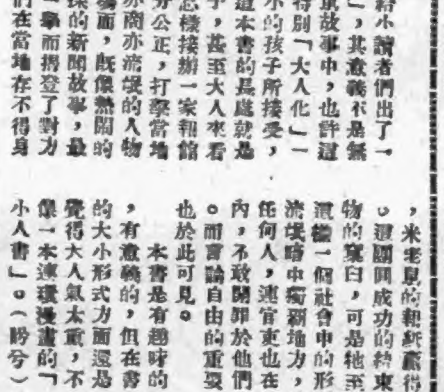 給小讀者們出了一
」,其意義不是無
童故事中,也許這
特別「大人化」一
小的孩子所接受,
這本書的長處就是
子,甚至大人來看
怎樣接辦一家報館
分公正,打擊當地
亦商亦流氓的人物
場面,既像熱鬧的
陳的新聞故事,最
一舉而摺登了對方
們在當地存不得身
,米老鼠的報紙贏得
。這團圓成功的結束
物的窠臼,可是牠至
這樣一個社會中的形
流氓暗中獨霸地方,
任何人,連官吏也在
內,不敢開罪於他們
。而言論自由的重要
也於此可見。
本書是有趣味的
,有意義的,但在書
的大小形式方面還是
覺得大人氣太重,不
像一本連環漫畫的「
小人書」。(盼兮)